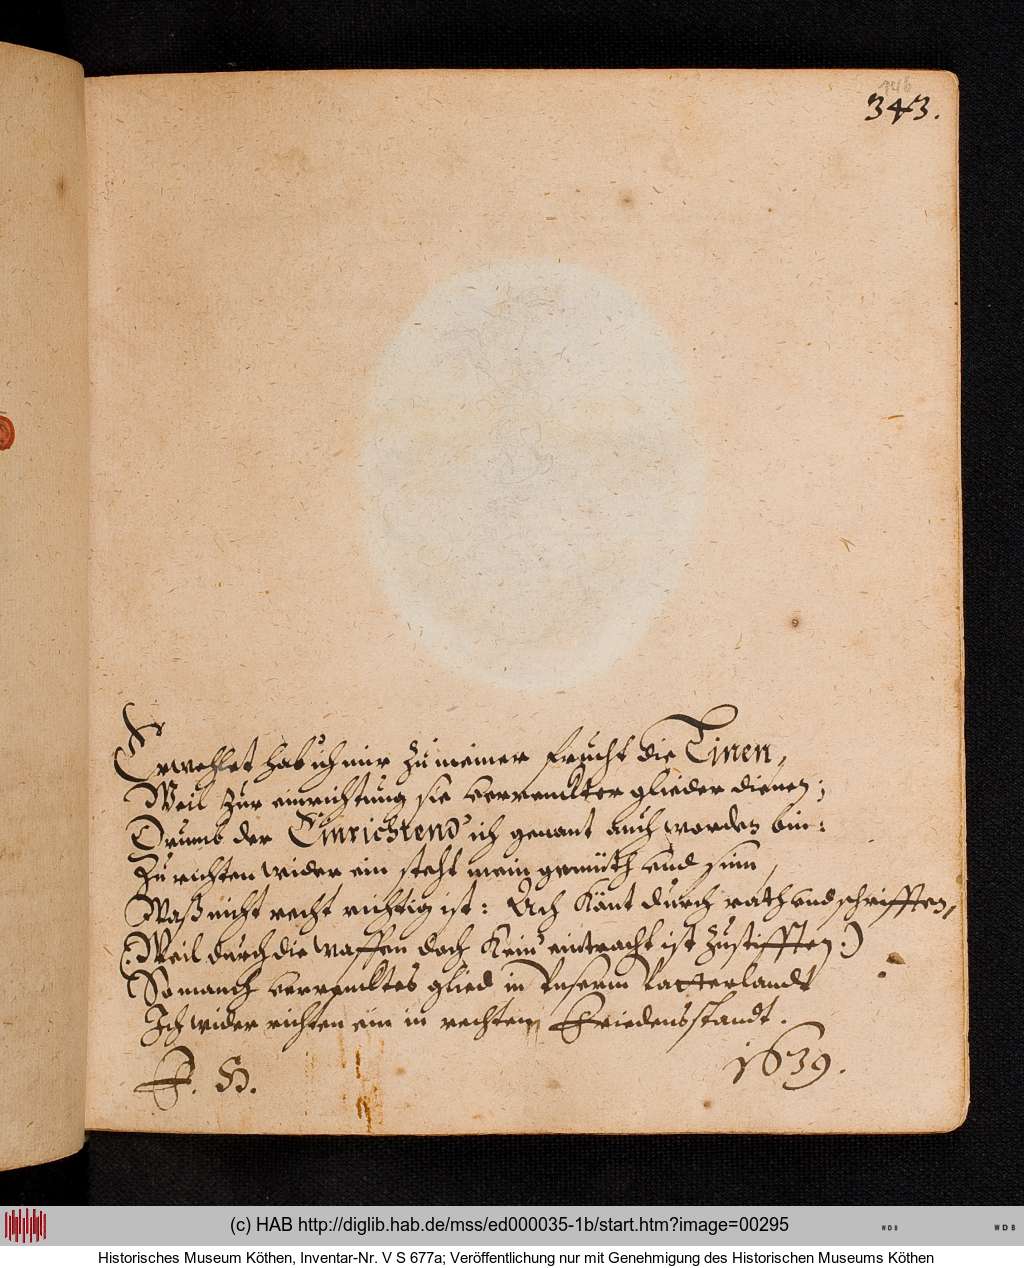 343.
Erwehlet hab ich mir zu meiner frucht die Linen,
Weil zur einrichtung sie verrenckter glieder dienen;
Drumb der Einrichtend' ich genant auch worden bin:
Zu richten wider ein steht mein gemüth und sinn,
Waß nicht recht richtig ist: Ach könt durch rath und schrifften,
(: Weil durch die waffen doch kein' eintracht ist zustifften :)
So manch verrencktes glied in Unserm Vatterlandt
Ich wider richten ein in rechten Friedensstandt.
F. H. 1639.
(c) HAB http://diglib.hab.de/mss/ed000035-1b/start.htm?image=00295
WDB
WDB
Historisches Museum Köthen, Inventar-Nr. V S 677a; Veröffentlichung nur mit Genehmigung des Historischen Museums Köthen